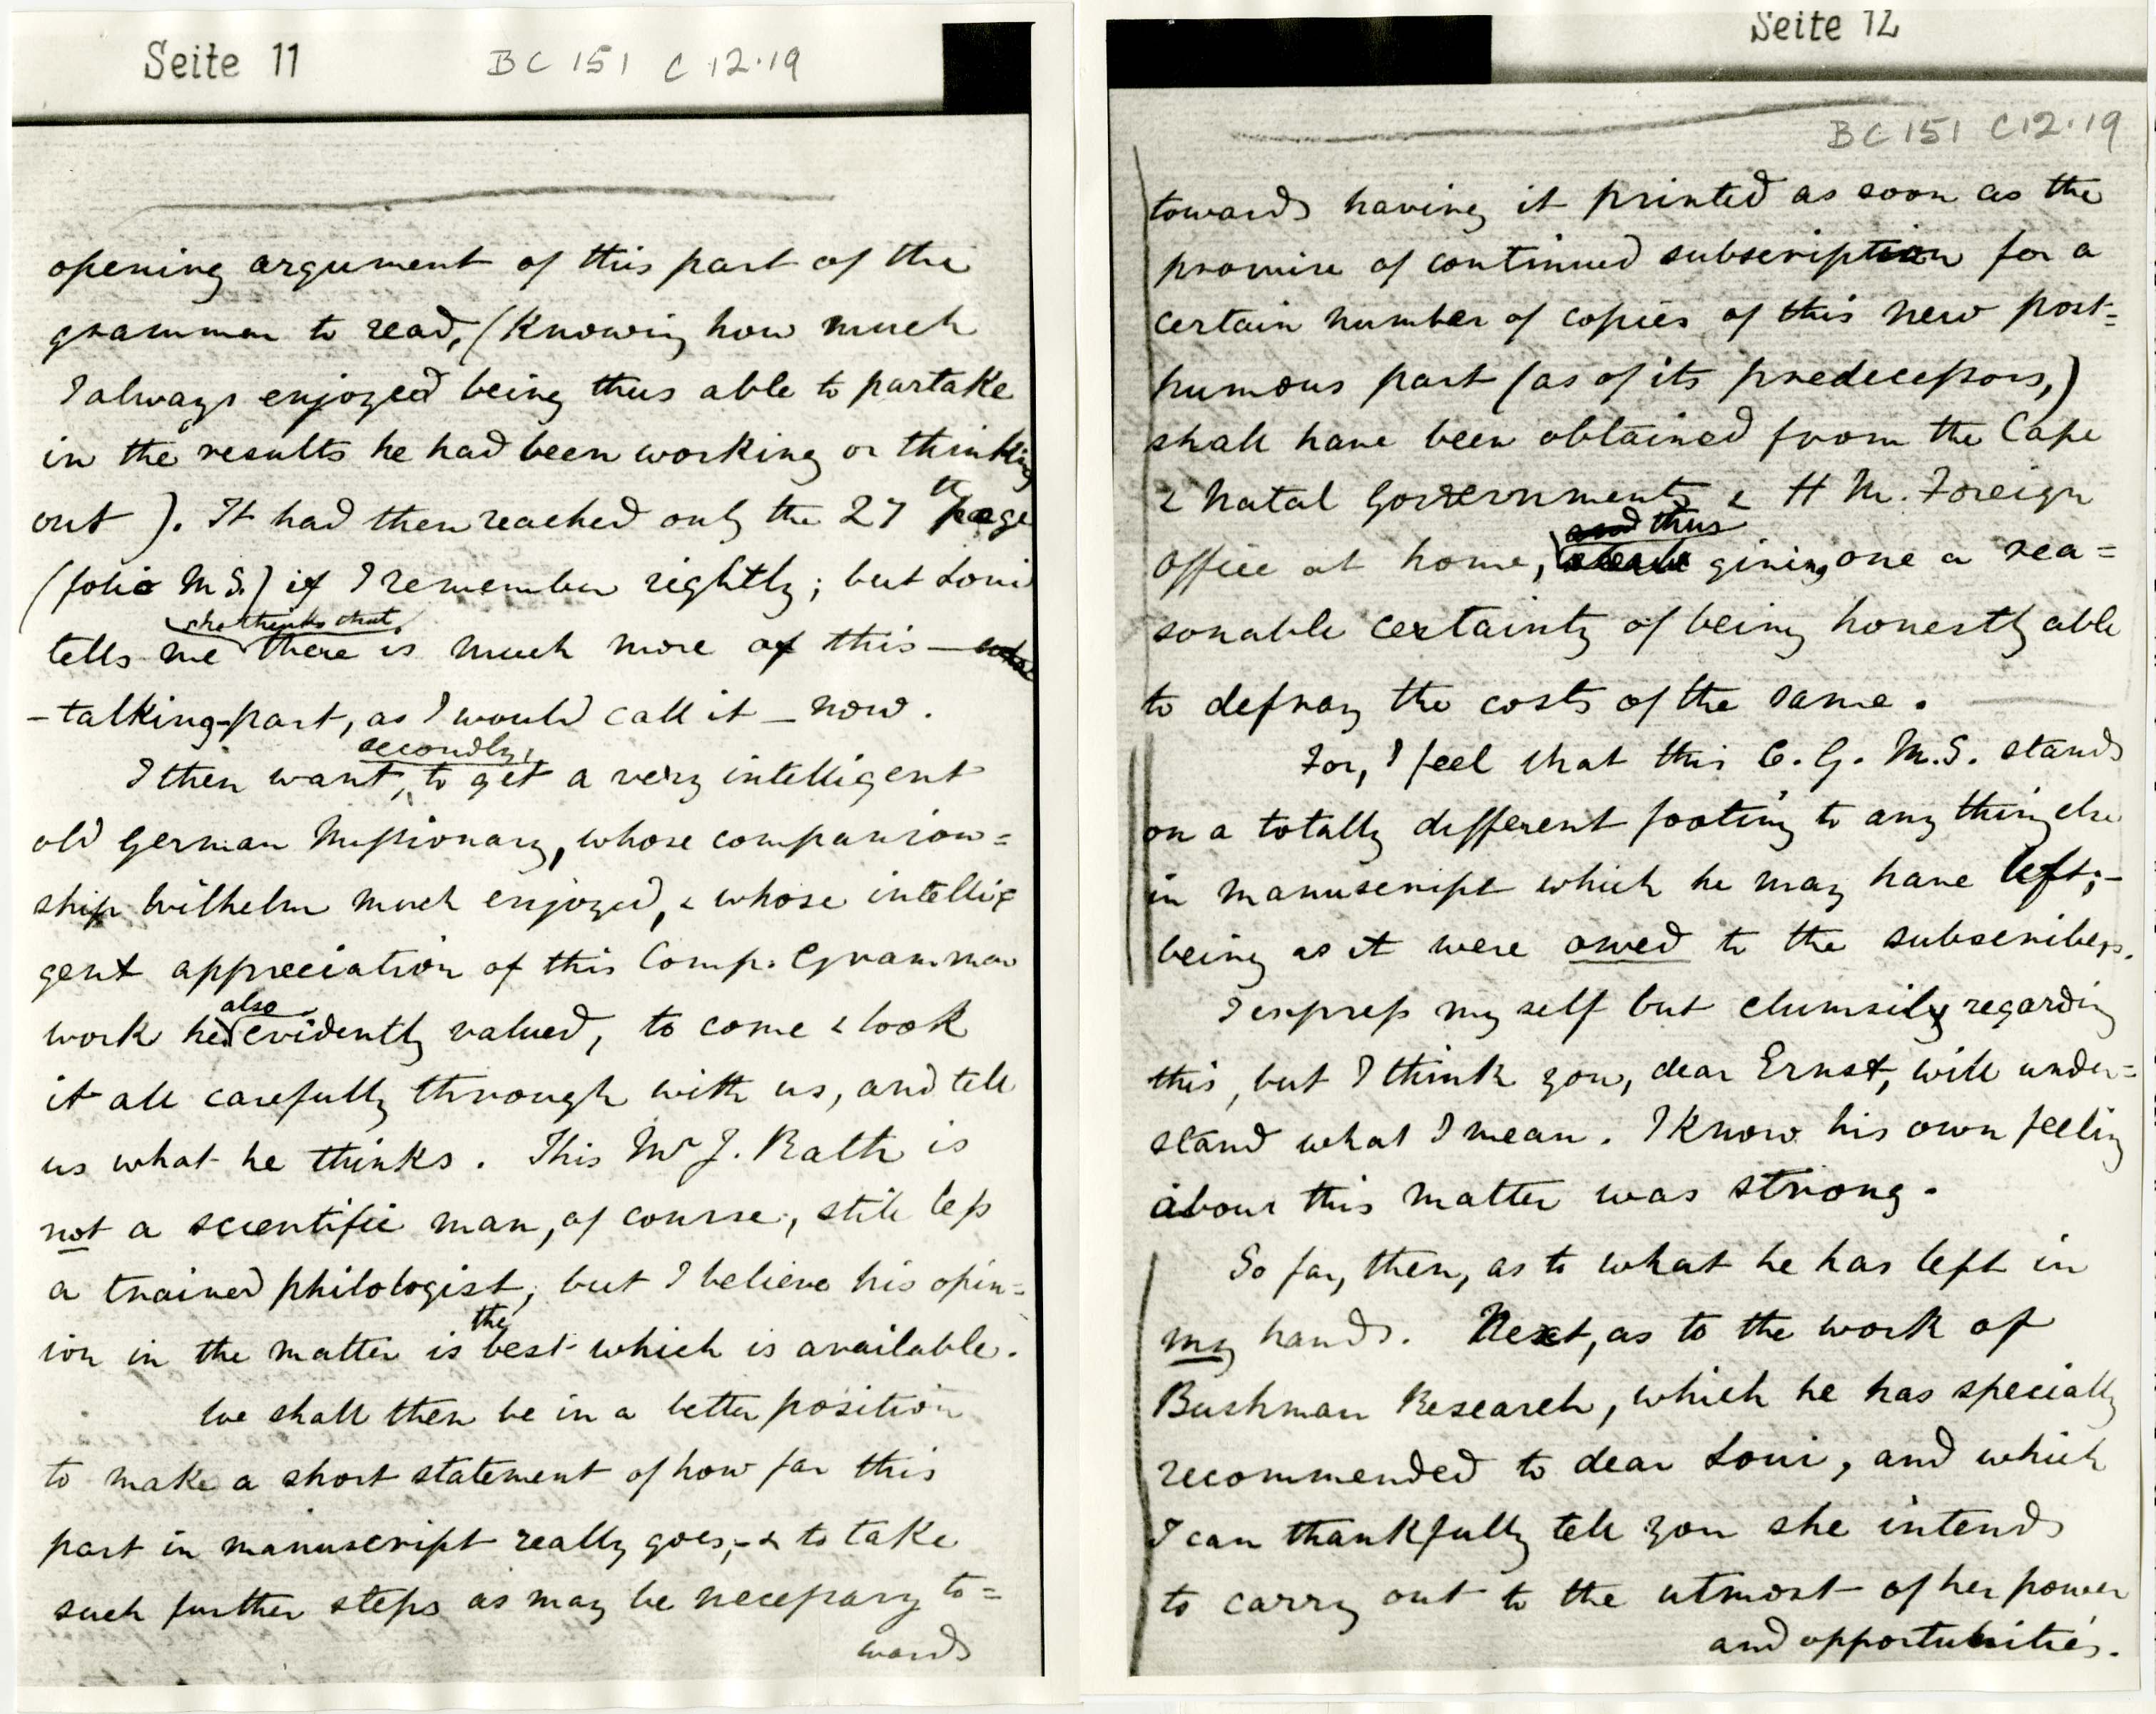 Seite 11
BC 151 C 12.19
opening argument of this part of the
grammar to read, (Knowing how much
I always enjoyed being thus able to partake
in the results he had been working or thinking
out). It had then reached only the 27th page
(folio M S.) if I remember rightly; but Loui
she thinks that
tells me there is much more of this —
- talking-part, as I would call it — now.
secondly,
I then want, to get a very intelligent
old German Missionary, whose companion=
ship Wilhelm much enjoyed, & whose intelli
gent appreciation of this Comp. Grammar
also
work he evidently valued, to come & look
it all carefully through with us, and tell
us what he thinks. This Mr J. Rath is
not a scientific man, of course, still less
a trained philologist, but I believe his opin=
the
ion in the matter is best which is available.
We shall then be in a better position
to make a short statement of how far this
part in manuscript really goes, - & to take
such further steps as may be necessary to=
wards
Seite 12
BC 151 C12.19
towards having it printed as soon as the
promise of continued subscription for a
certain number of copies of this new post=
humous part (as of its predecessors,)
shall have been obtained from the Cape
& Natal Governments & H M. Foreign
and thus
Office at home, giving one a rea=
sonable certainty of being honestly able
to defray the costs of the same.
For, I feel that this C. G. M.S. stands
on a totally different footing to any thing else
in manuscript which he may have left; -
being as it were owed to the subscribers.
I express my self but clumsily regarding
this, but I think you, dear Ernst, will under=
stand what I mean. I know his own feeling
about this matter was strong.
So far, then, as to what he has left in
my hands. Next, as to the work of
Bushman Research, which he has specially
recommended to dear Loui, and which
I can thankfully tell you she intends
to carry out to the utmost of her power
and opportunities.